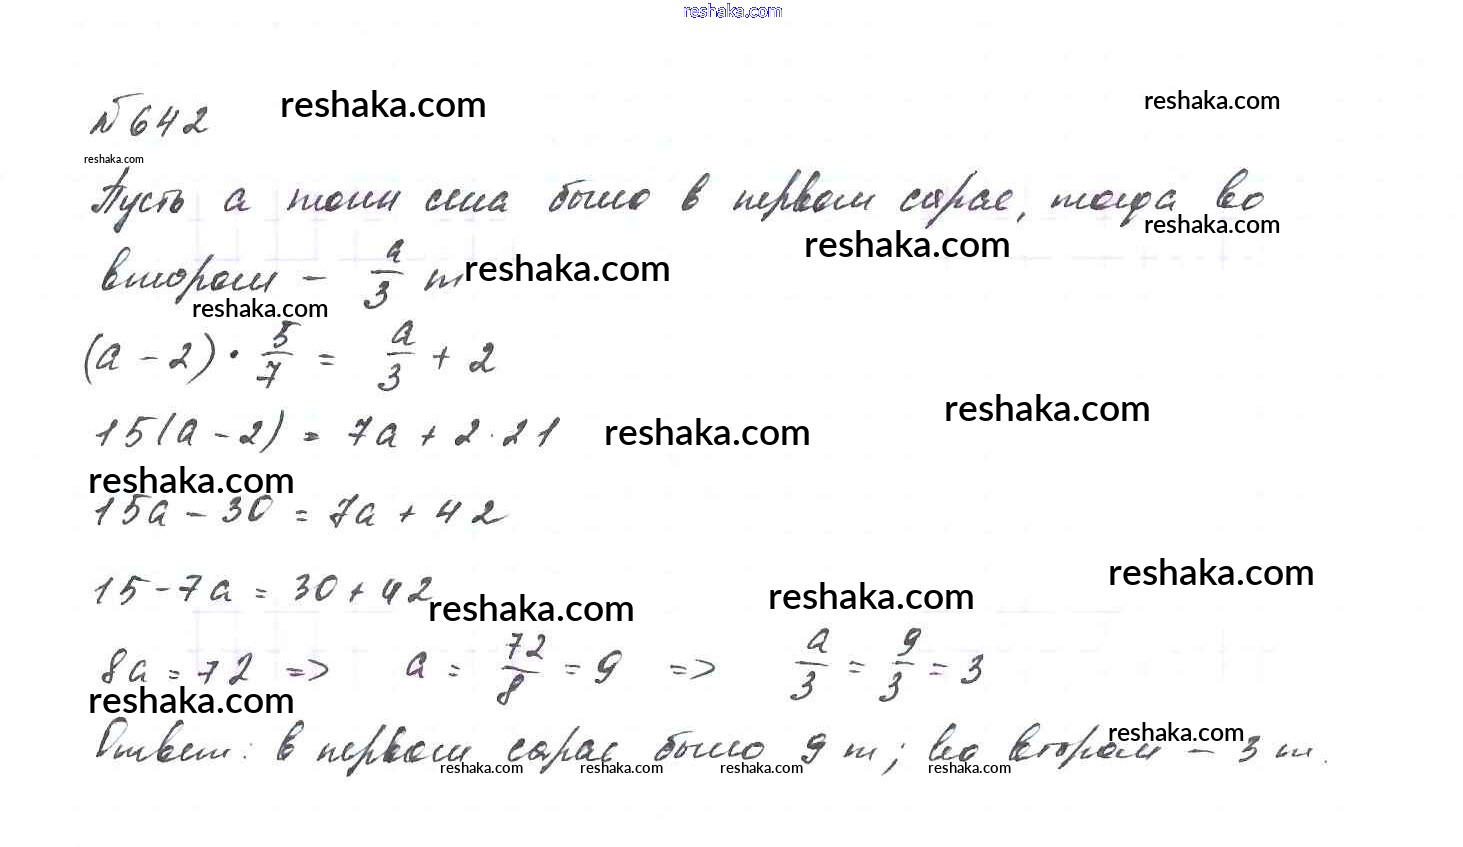 reshaka.com
№642 reshaka.com reshaka.com
reshaka.com
Пусть a тонн сена было в первом сарае, тогда во
reshaka.com reshaka.com
втором - a/3 т reshaka.com
reshaka.com
(a - 2) · 5/7 = a/3 + 2
15(a - 2) = 7a + 2·21 reshaka.com reshaka.com
reshaka.com
15a - 30 = 7a + 42
15 - 7a = 30 + 42 reshaka.com reshaka.com reshaka.com
8a = 72 => a = 72/8 = 9 => a/3 = 9/3 = 3
reshaka.com
Ответ: в первом сарае было 9 т; во втором - 3 т. reshaka.com
reshaka.com reshaka.com reshaka.com reshaka.com